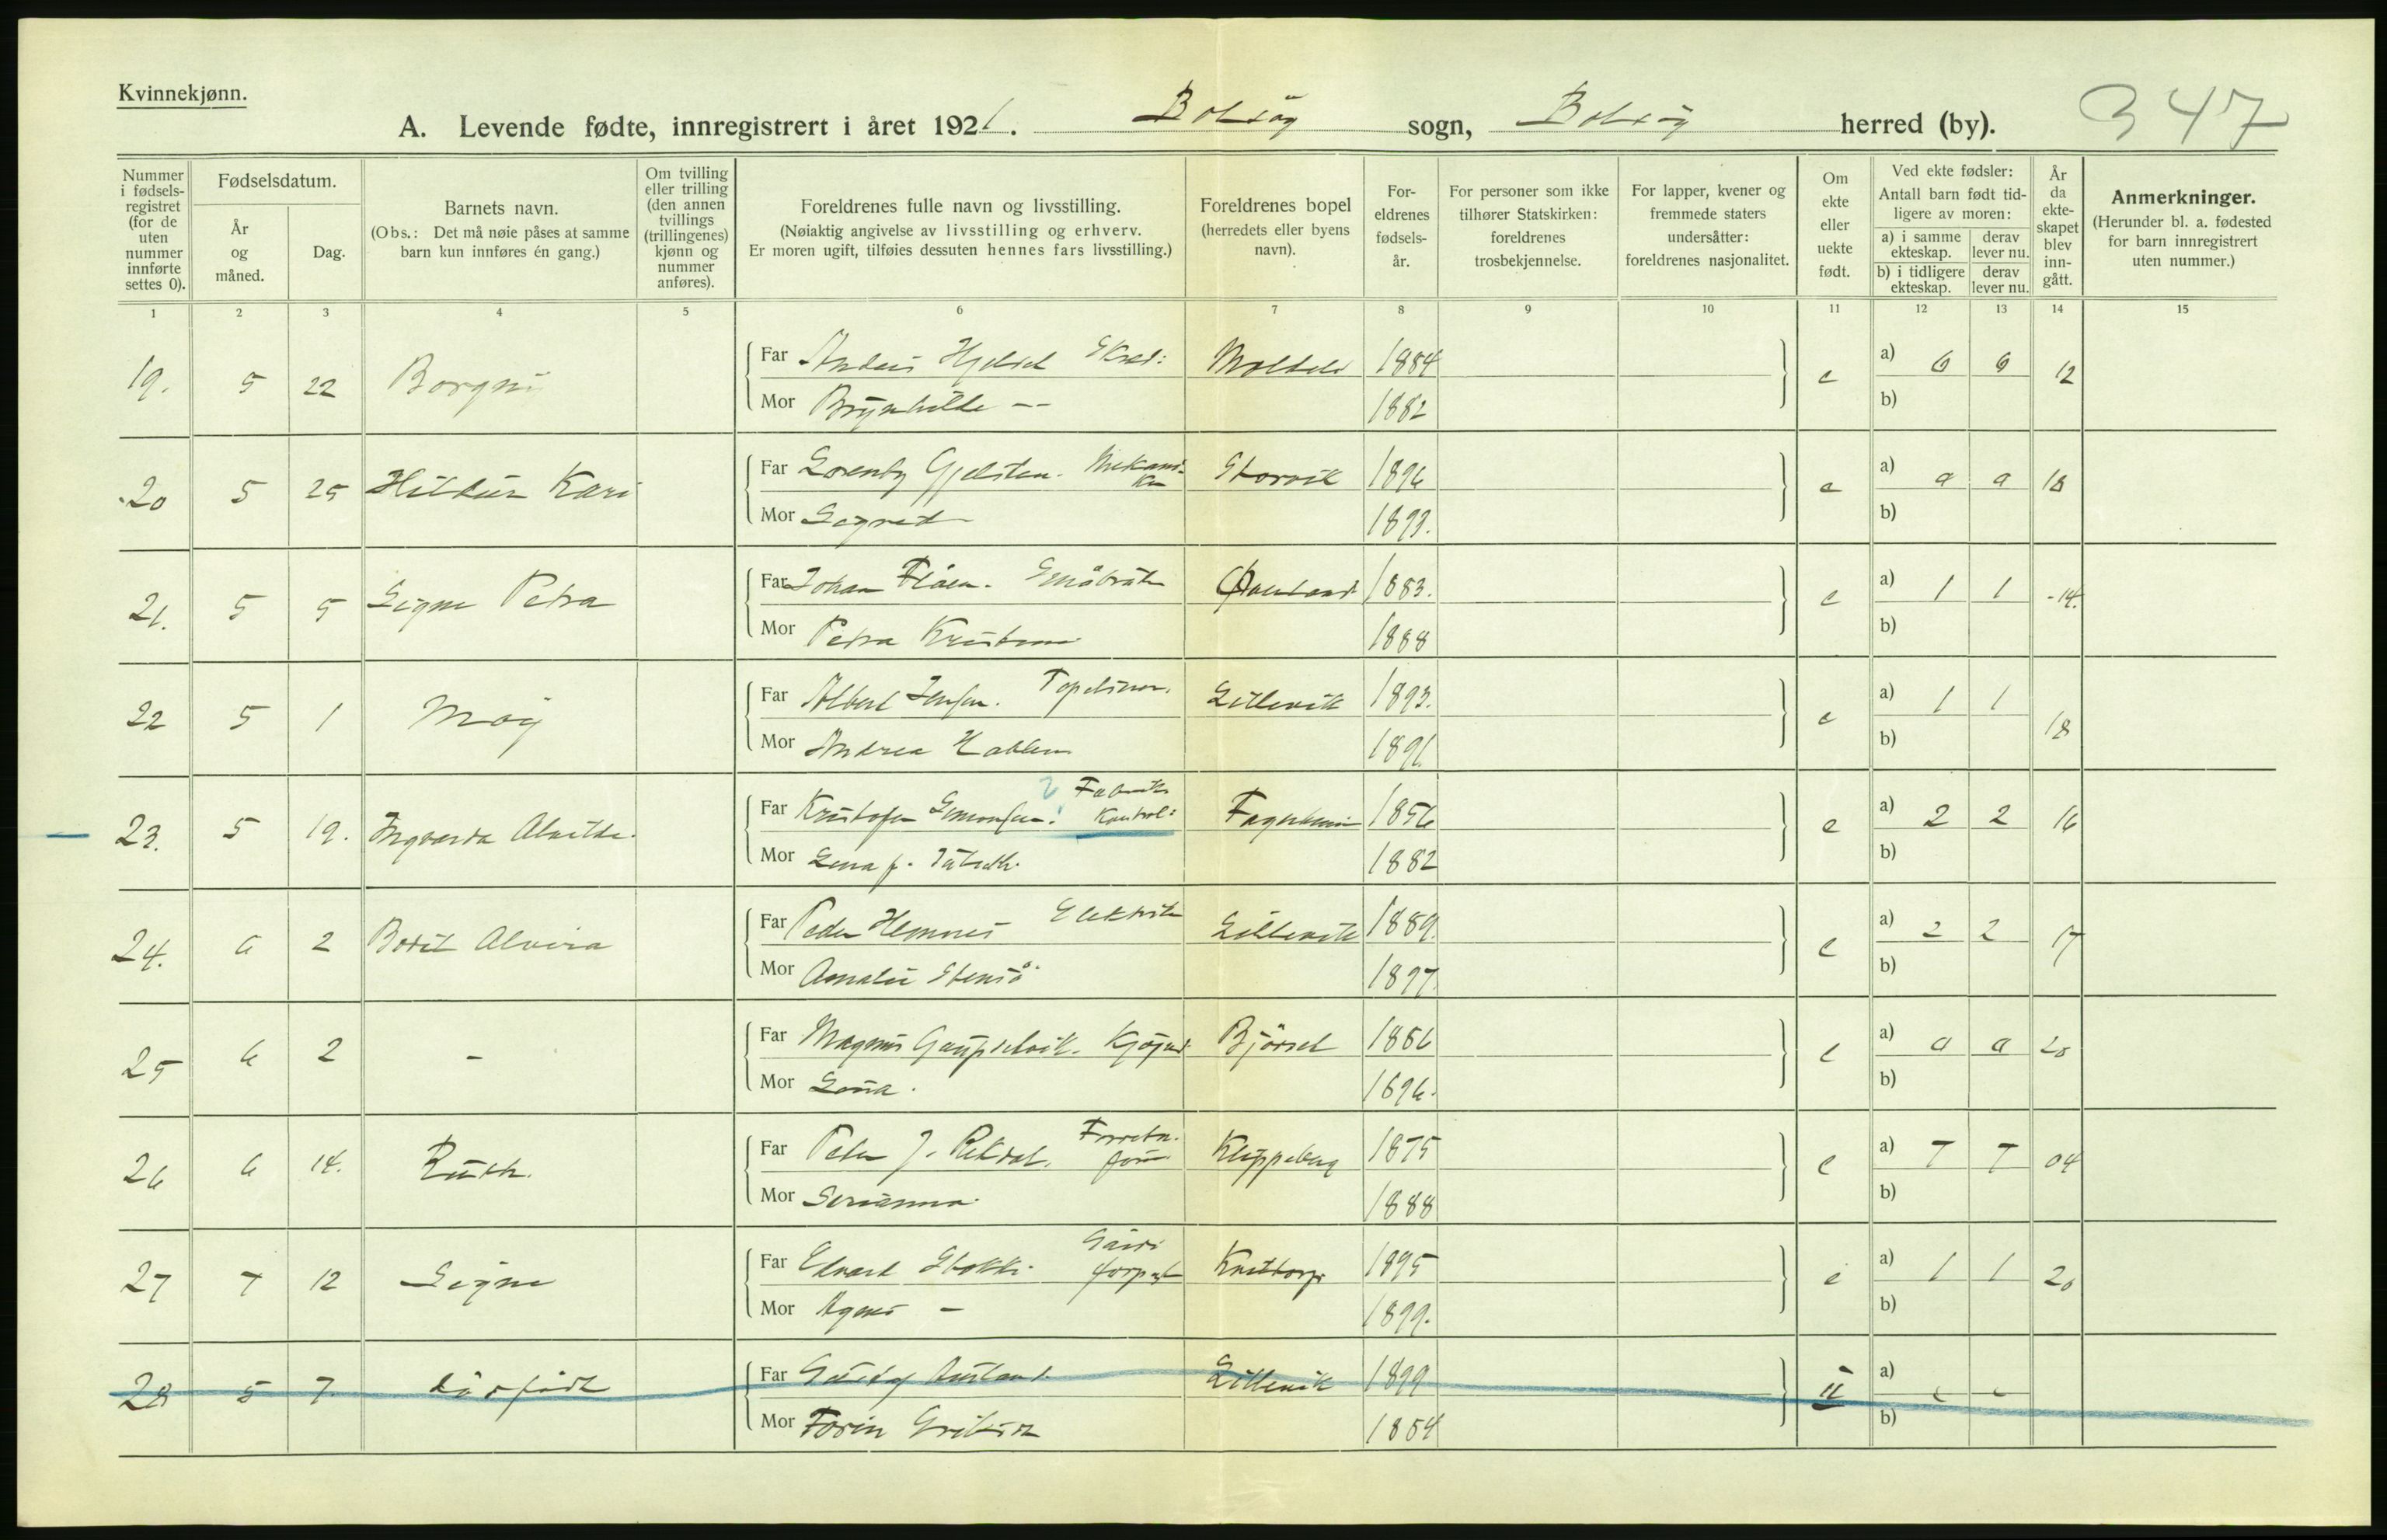 Kvinnekjønn.
A. Levende fødte, innregistrert i året 1921. Bolsøy sogn, Bolsøy herred (by). 347
Nummer i fødsels-registret (for de uten nummer innførte settes 0).
Fødselsdatum.
År og måned.
Dag.
Barnets navn.
(Obs.: Det må nøie påses at samme barn kun innføres én gang.)
Om tvilling eller trilling (den annen tvillings (trillingenes) kjønn og nummer anføres).
Foreldrenes fulle navn og livsstilling.
(Nøiaktig angivelse av livsstilling og erhverv.
Er moren ugift, tilføies dessuten hennes fars livsstilling.)
Foreldrenes bopel (herredets eller byens navn).
For-eldrenes fødsels-år.
For personer som ikke tilhører Statskirken: foreldrenes trosbekjennelse.
For lapper, kvener og fremmede staters undersåtter: foreldrenes nasjonalitet.
Om ekte eller uekte født.
Ved ekte fødsler:
Antall barn født tid-ligere av moren:
a) i samme ekteskap. derav lever nu.
b) i tidligere ekteskap. derav lever nu.
År da ekte-skapet blev inn-gått.
Anmerkninger.
(Herunder bl. a. fødested for barn innregistrert uten nummer.)
1 2 3 4 5 6 7 8 9 10 11 12 13 14 15
19. 5 22 Borgny Far Anders Hjelset Moldeli 1884 e a) 6 6 12
Mor Brynhilde -- 1882 b)
20 5 25 Hildur Kari Far Lorentz Gjelsten. Mekani-ker Storvik 1896 e a) 0 0 18
Mor Sigrid 1893. b)
21. 5 5 Signe Petra Far Johan Flåen. Småbruker 1883. e a) 1 1 -14.
Mor Petra 1888 b)
22 5 1 Moy Far Albert Jensen. Lillevik 1893. e a) 1 1 18
Mor Andrea 1891 b)
23. 5 19. Ingvarda Alvilde. Far Kristofer Simonsen. Fabrik Kontrol: Fagerheim 1856 e a) 2 2 16
Mor 1882 b)
24. 6 2 Bodil Alvira Far Peder Hemnes Elektrik Lillevik 1889. e a) 2 2 17
Mor Amalie Stensø 1897. b)
25 6 2 - Far Magnus Gaupseth Bjørset 1886 e a) 0 0 20
Mor 1896. b)
26 6 14. Ruth. Far Peter J. Rekdal. Forretn. Kleppeberg 1875 e a) 7 7 04
Mor Serianna. 1888 b)
27 7 12 Signe Far Edvard Stokke. Gårdforpagt 1895 e a) 1 1 20
Mor Agnes - 1899. b)
28 5 7. dødfødt Far Gustav Lillevik 1899 u a)
Mor 1884 b)